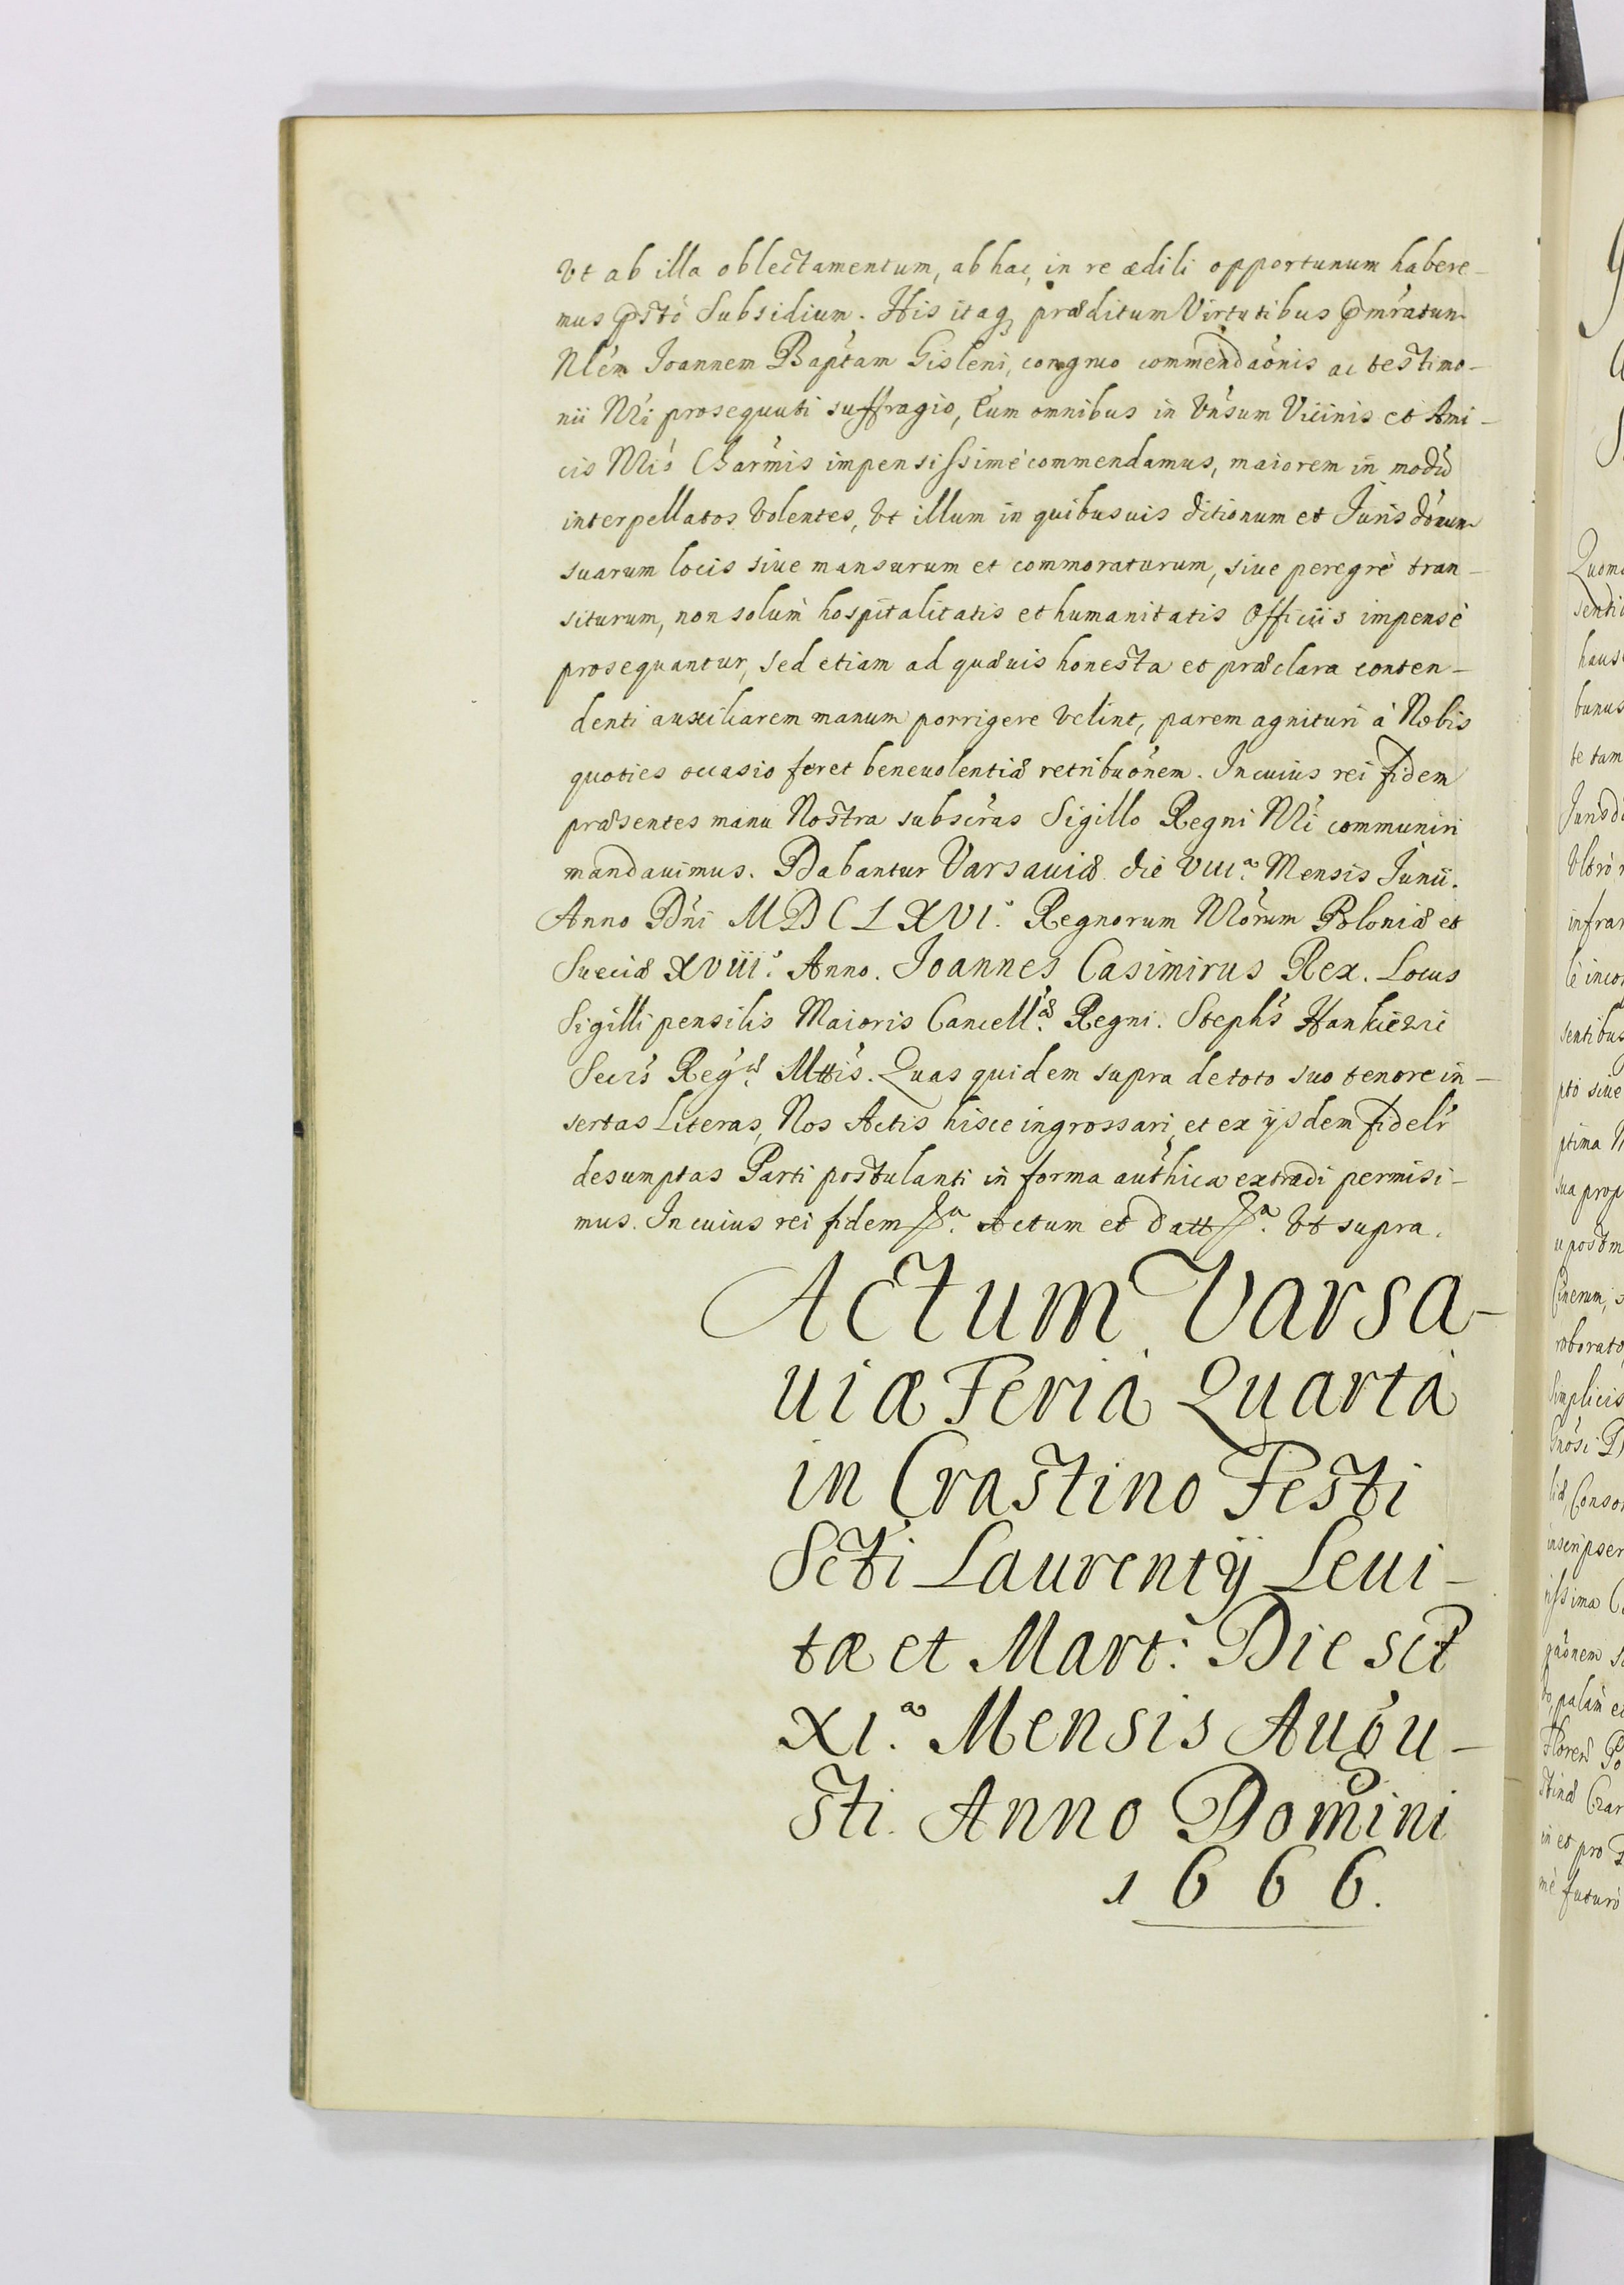 Vt ab illa oblectamentum, ab hac, in re ædili opportunum habere-
mus Subsidium. His itaq, præditum Virtutibus
Nlém Joannem Baptám Gisleni, congruo commendaónis ac testimo-
nii Nŕi prosequuti suffragio, Eum omnibus in Vńsum Vicinis et Ami-
cis Nŕis Chaŕmis impensissimè commendamus, maiorem in modū
interpellatos Volentes, Vt illum in quibusuis ditionum et Jurisdónum
suarum locis siue mansurum et commoraturum, siue peregrè tran-
siturum, non solum̀ hospitalitatis et humanitatis Officiis impensè
prosequantur, sed etiam ad quæuis honesta et præclara conten-
denti auxiliarem manum porrigere Velint, parem agnituri à Nobis
quoties occasio feret beneuolentiæ retribuónem. In cuius rei fidem
præsentes manu Nostra subscŕas Sigillo Regni Nŕi communiri
mandauimus. Dabantur Varsauiæ die VIIIᵃ. Mensis Junii.
Anno Dńi MDCLXVIº. Regnorum Nŕorum Poloniæ et
Sueciæ XVIIIº. Anno. Joannes Casimirus Rex. Locus
Sigilli pensilis Maioris Cancellǽ. Regni. Stephś Hankiewic
Secrś Regǽ. Mttis. Quas quidem supra de toto suo tenore in-
sertas Literas, Nos Actis hisce ingrossari, et ex ijsdem fidelŕ
desumptas Parti postulanti in forma authíca extradi permisi-
mus. In cuius rei fidem Actum et Datt Vt supra.
Actum Varsa-
uiæ Feriâ Quartâ
in Crastino Festi
Scti Laurentij Leui-
tæ et Mart: Die sct
XIᵃ. Mensis Augu-
sti. Anno Domini
1666.
Quomo
senti
haus
bunus
te tam
Jurisdi
Vltrò
infra
lè inco
sentibus
pto siue
ptima
sua prop
u postm
roborato
implicis
Conso
inscripser
issima
palam
in et pro
mè futuro